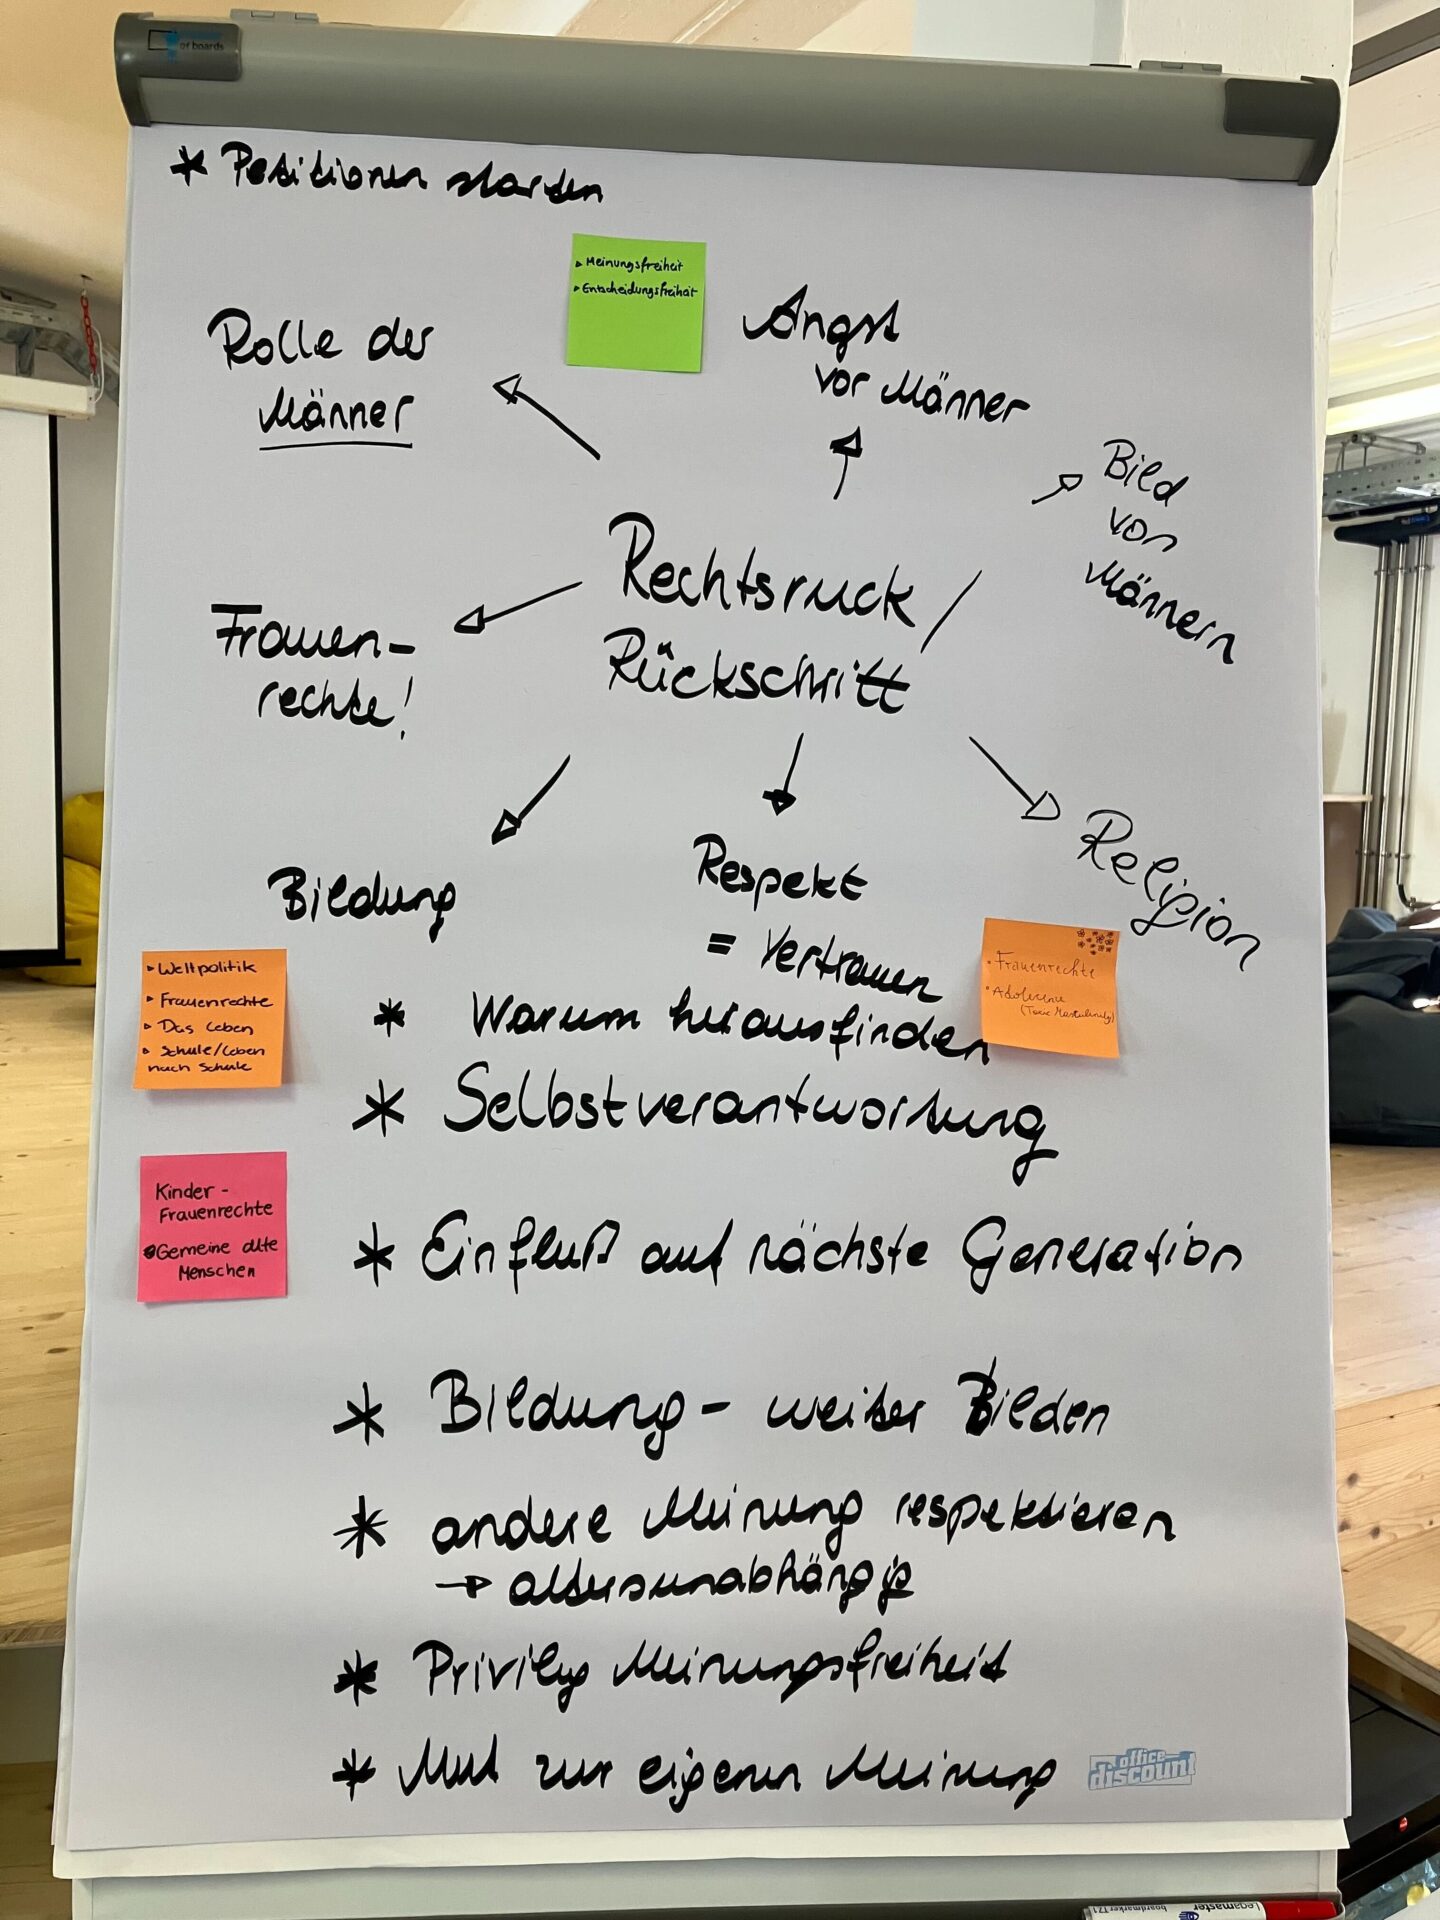 of boards
* Petitionen starten
▸ Meinungsfreiheit
▸ Entscheidungsfreiheit
Rolle der
Männer
Angst
vor Männer
Bild
von
Männern
Rechtsruck /
Rückschritt
Frauen-
rechte!
Bildung
Respekt
= Vertrauen
Religion
▸ Weltpolitik
▸ Frauenrechte
▸ Das Leben
▸ Schule/Leben
nach Schule
• Frauenrechte
(Toxic Masculinity)
* Warum herausfinden
* Selbstverantwortung
Kinder-
Frauenrechte
Gemeine alte
Menschen
* Einfluß auf nächste Generation
* Bildung - weiter Bilden
* andere Meinung respektieren
→ altersunabhängig
* Privileg Meinungsfreiheit
* Mut zur eigenen Meinung
office
discount
Legamaster
boardmarker TZ1